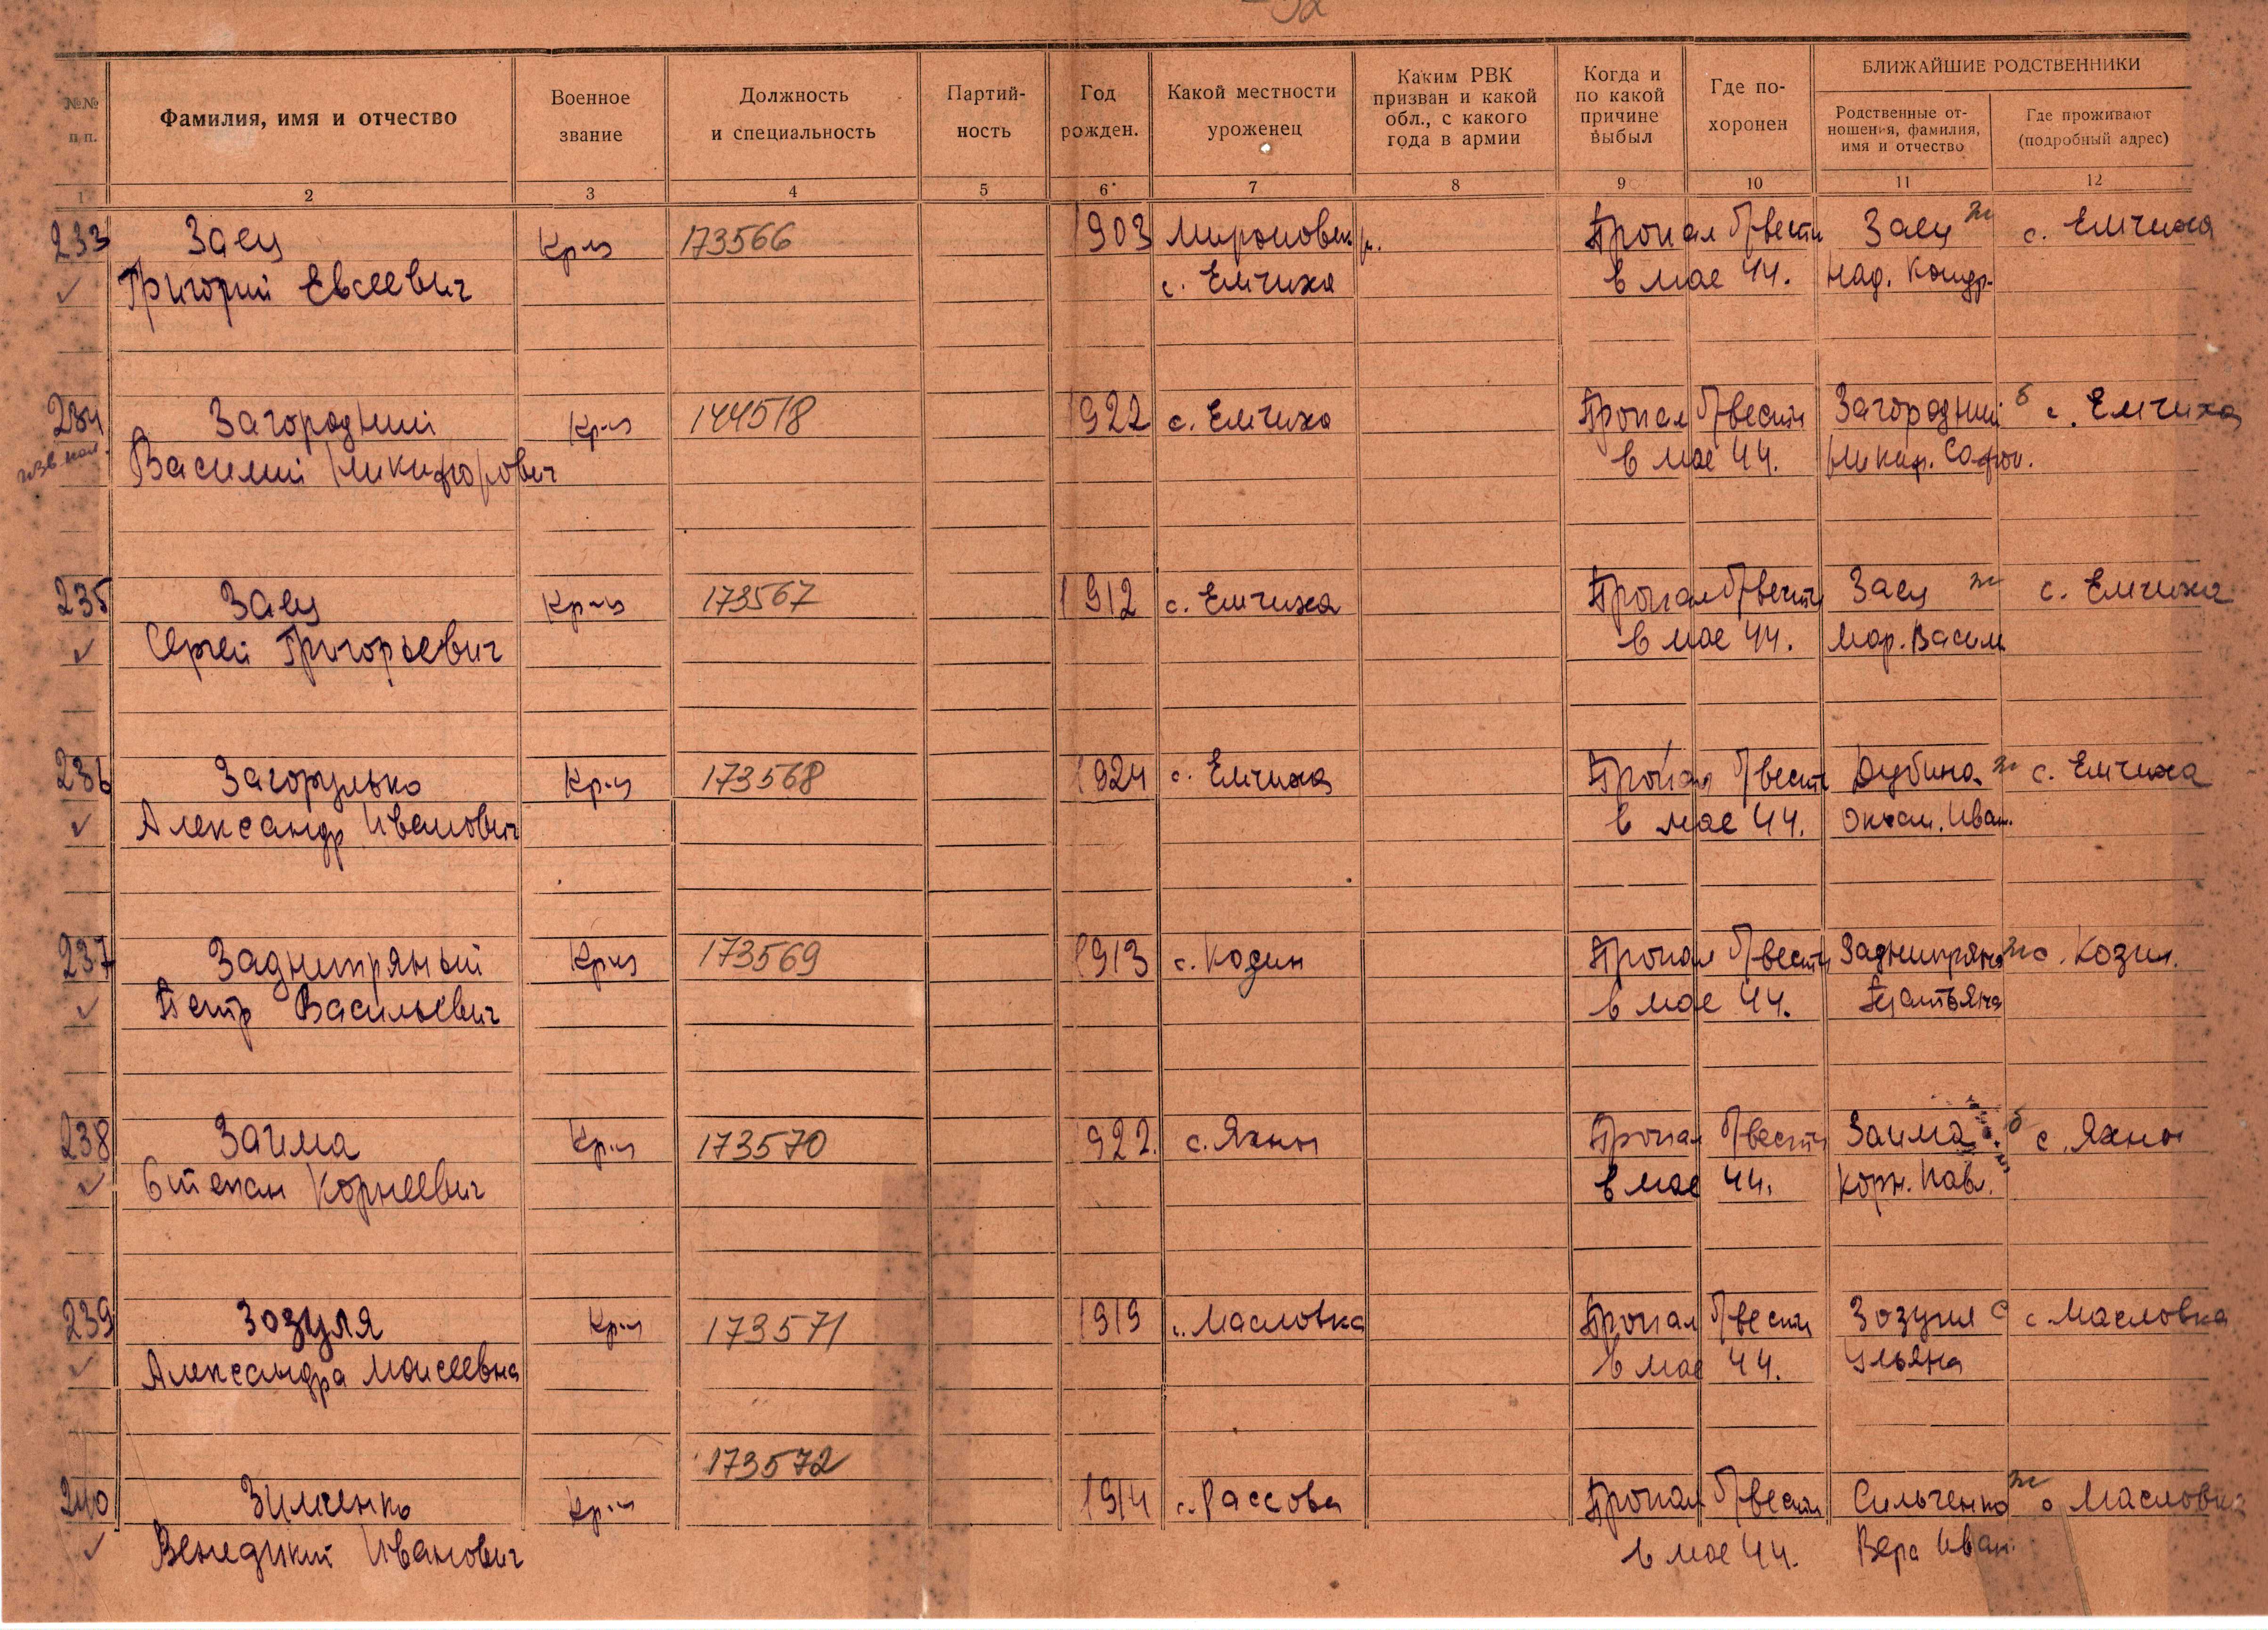 №№ п/п.
Фамилия, имя и отчество
Военное звание
Должность и специальность
Партий-ность
Год рожден.
Какой местности уроженец
Каким РВК призван и какой обл., с какого года в армии
Когда и по какой причине выбыл
Где по-хоронен
БЛИЖАЙШИЕ РОДСТВЕННИКИ
Родственные от-ношения, фамилия, имя и отчество
Где проживают (подробный адрес)
1 2 3 4 5 6 7 8 9 10 11 12
233 Заец Кр-ц 173566 1903 Мироновск р. Пропал б/вести Заец ж с. Емчиха
Григорий Евсеевич с. Емчиха в мае 44. Над. Кондр.
234 Загородний Кр-ц 144518 1922 с. Емчиха Пропал б/вести Загородний б с. Емчиха
Василий Никифорович в мае 44. Никиф. Софон.
235 Заец Кр-ц 173567 1912 с. Емчиха Пропал б/вести Заец ж с. Емчиха
Сергей Григорьевич в мае 44. Мар. Васил.
236 Загорулько Кр-ц 173568 1924 с. Емчиха Пропал б/вести Дубина ж с. Емчиха
Александр Иванович в мае 44. Оксан. Иван.
237 Заднипряный Кр-ц 173569 1913 с. Козин Пропал б/вести Заднипряная ж с. Козин.
Петр Васильевич в мае 44. Татьяна
238 Заима Кр-ц 173570 1922. с. Яхны Пропал б/вести Заима б с. Яхны
Степан Корнеевич в мае 44. Корн. Пав.
239 Зозуля Кр-ц 173571 1919 с. Масловка Пропал б/вести Зозуля с с Масловка
Александра Моисеевна в мае 44. Ульяна
173572
240 Зильченко Кр-ц 1914 с. Россова Пропал б/вести Сильченко ж с Масловка
Венедикий Иванович в мае 44. Вера Иван.